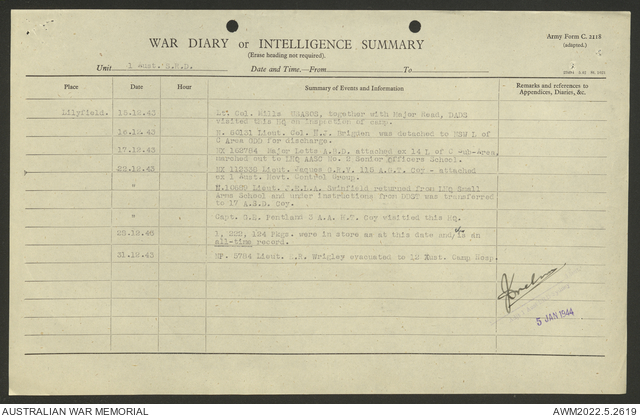 Army Form C. 2118
(adapted.)
WAR DIARY or INTELLIGENCE SUMMARY
(Erase heading not required).
Unit 1 Aust.
Date and Time.—From
To
Place
Date
Hour
Summary of Events and Information
Remarks and references to
Appendices, Diaries, &c.
Lilyfield.
15.12.43
Lt. Col. Mills together with Major Read, DADS
visited this HQ on inspection of camp.
16.12.43
Lieut. Col. Brigden was detached to L of
C Area for discharge.
17.12.43
Major Lotts attached ex L of C Sub-Area,
marched out to LHQ AASC No. 2 Senior Officers School.
22.12.43
Lieut. Jaques Coy - attached
ex 1 Aust. Control Group.
"
Lieut. returned from LHQ Small
Arms School and under instructions from was transferred
to 17 Coy.
"
Capt. G.E. Pentland 3 A.A. M.T. Coy visited this HQ.
pkgs. were in store as at this date and is an
all-time record.
31.12.43
Lieut. Wrigley evacuated to 12 Aust. Camp Hosp.
5 JAN 1944
AUSTRALIAN WAR MEMORIAL
AWM2022.5.2619